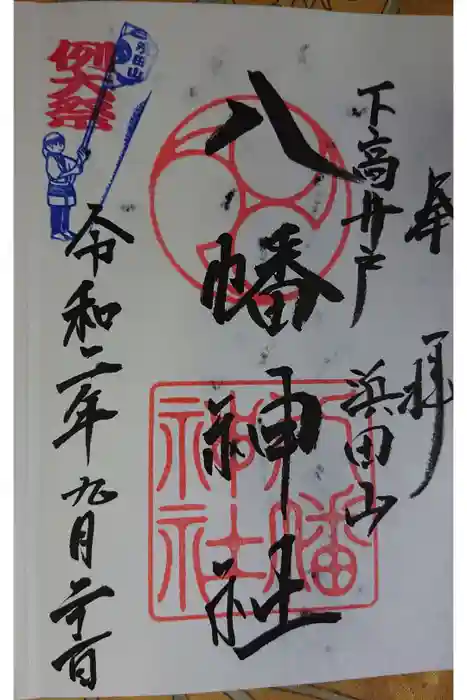 奉拝
下高井戸 浜田山
八幡神社
八幡
神社
例大祭
浜田山
令和二年九月二十一日